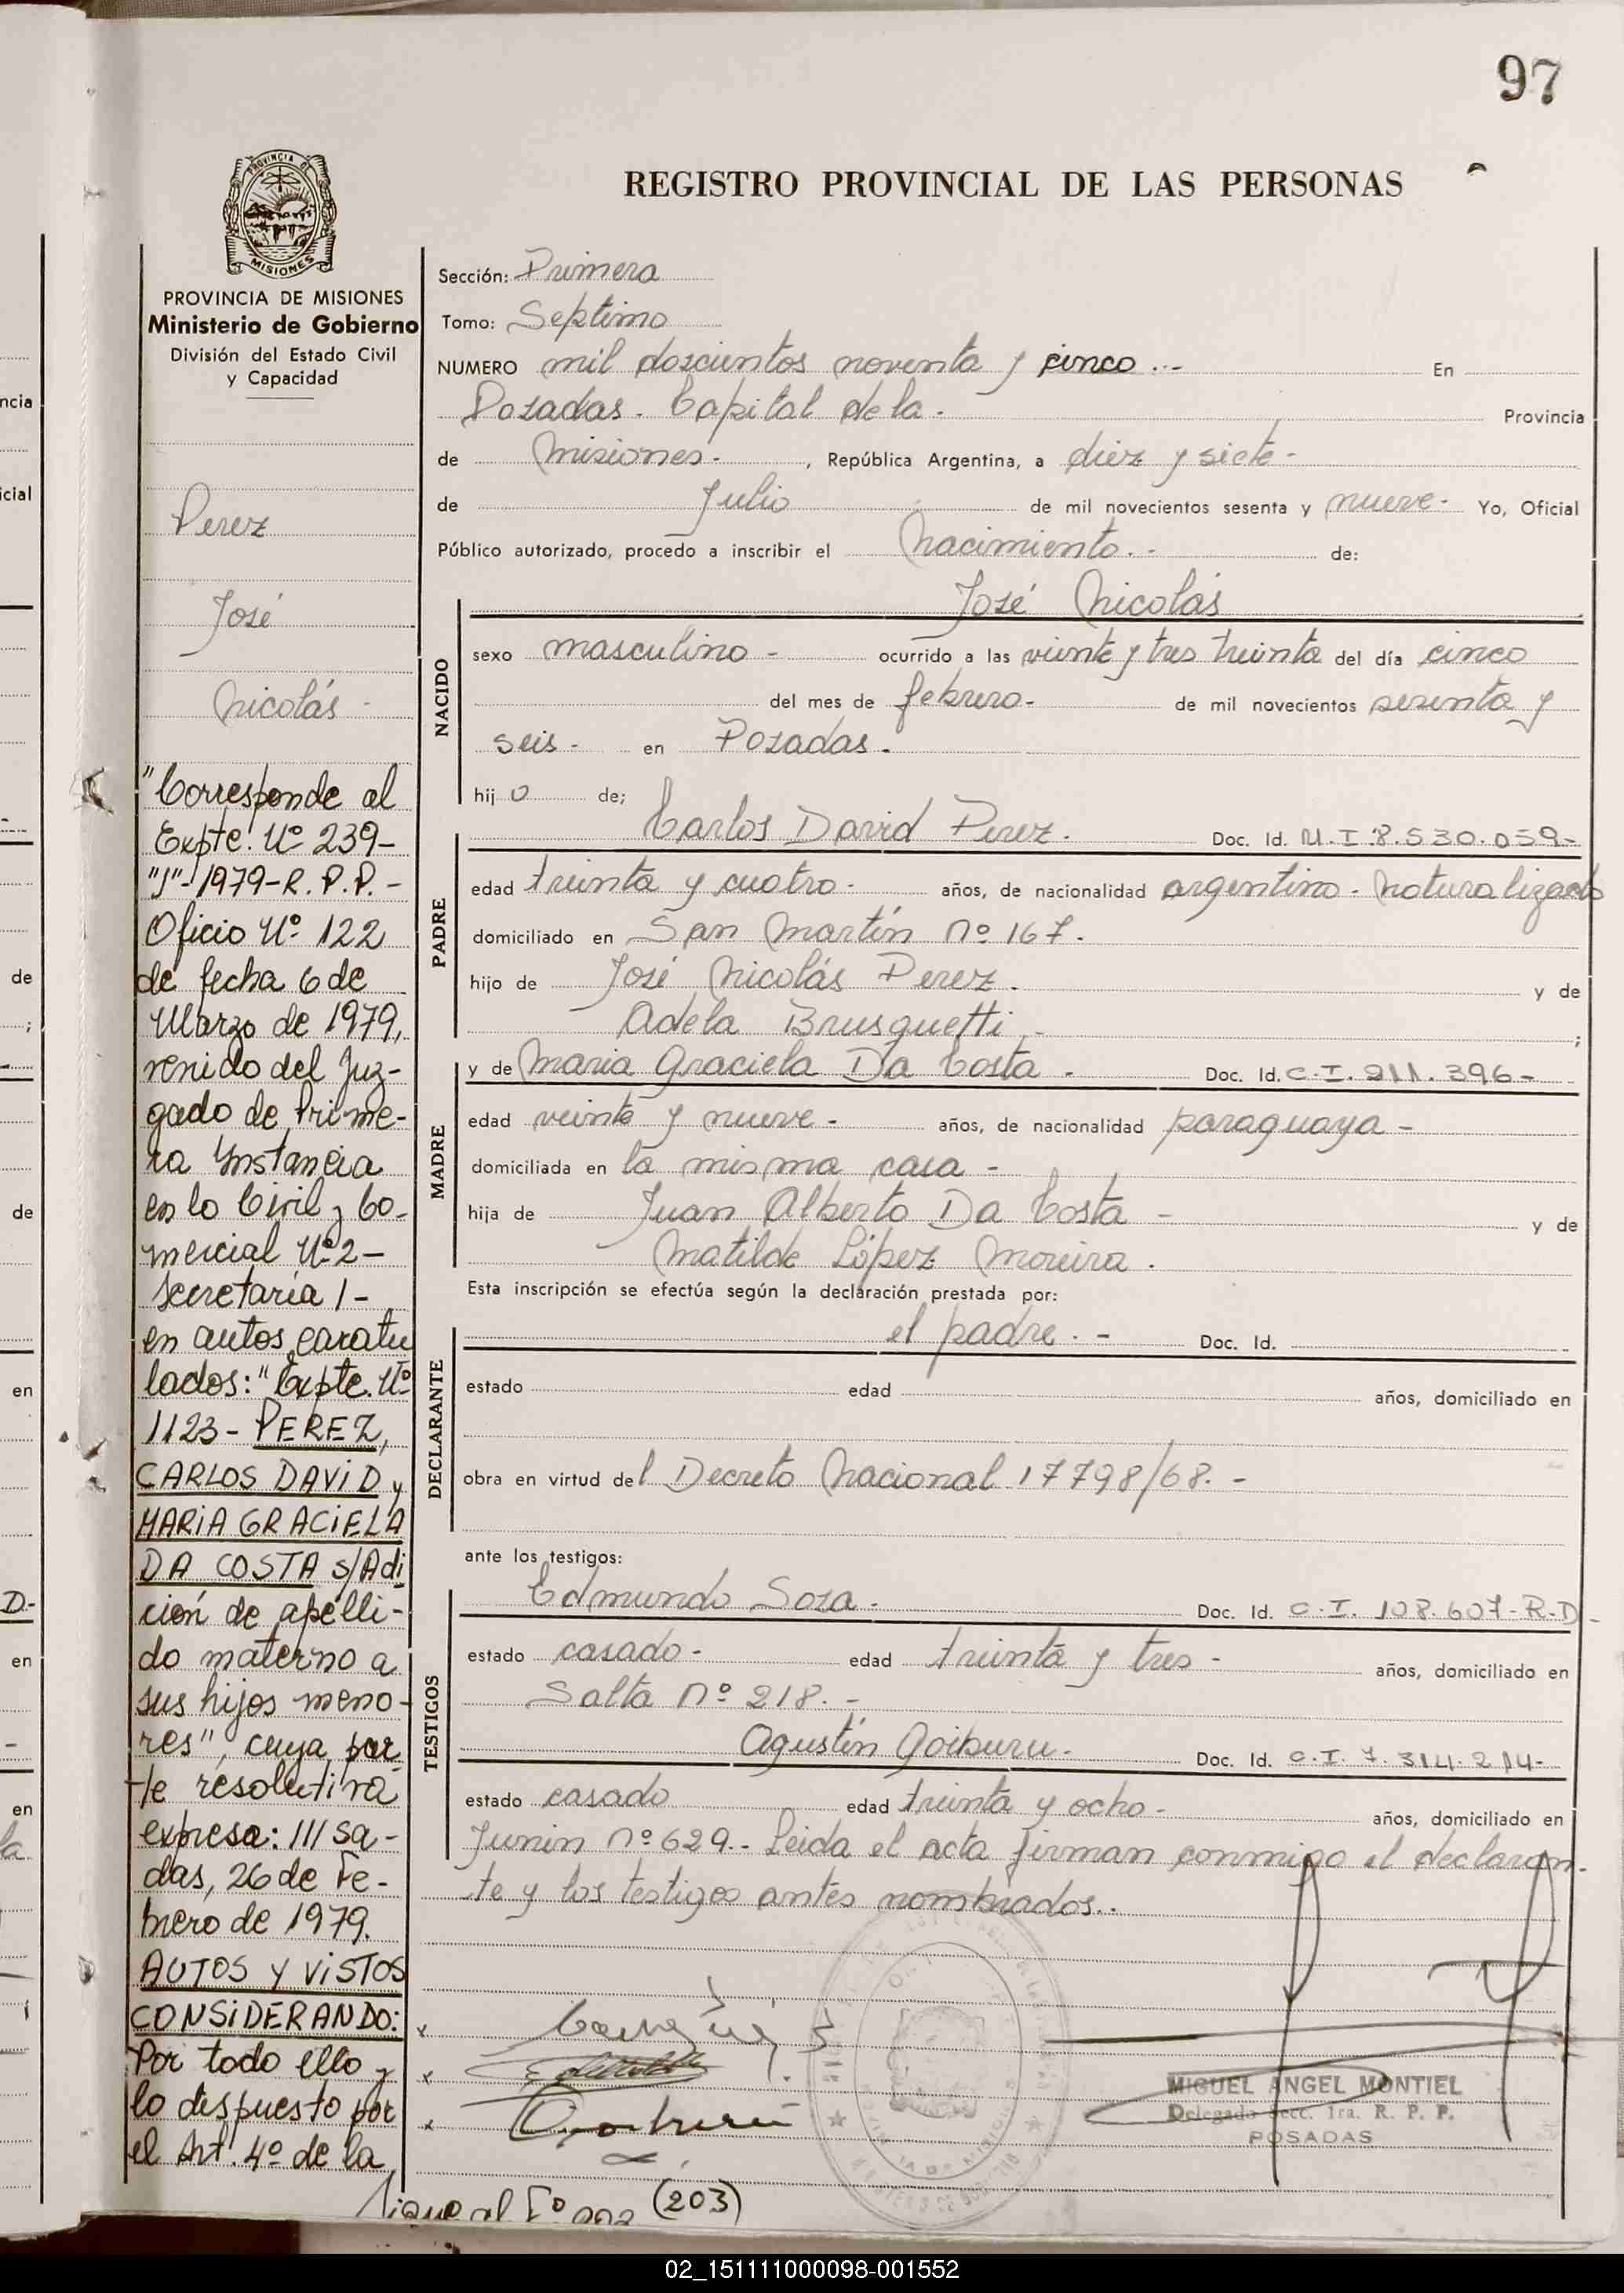 97
REGISTRO PROVINCIAL DE LAS PERSONAS
PROVINCIA DE
MISIONES
PROVINCIA DE MISIONES
Ministerio de Gobierno
División del Estado Civil
y Capacidad
Perez
José
Nicolás -
"Corresponde al
Expte. Nº 239-
"J"-1979-R. P. P. -
Oficio Nº 122
de fecha 6 de
Marzo de 1979,
venido del Juz-
gado de Prime-
ra Instancia
en lo Civil y Co-
mercial Nº2-
Secretaría 1-
en autos caratu
lados: "Expte. Nº
1123- PEREZ,
CARLOS DAVID y
MARIA GRACIELA
DA COSTA s/Adi
ción de apelli-
do materno a
sus hijos meno-
res", cuya par-
te resolutiva
expresa: ///sa-
das, 26 de Fe-
brero de 1979.
AUTOS Y VISTOS
CONSIDERANDO:
Por todo ello y
lo dispuesto por
el Art. 4º de la
Sigue al Fº (203)
Sección: Primera
Tomo: Septimo
NUMERO mil doscientos noventa y cinco ..- En
Posadas. Capital de la - Provincia
de Misiones- , República Argentina, a diez y siete -
de Julio de mil novecientos sesenta y nueve- Yo, Oficial
Público autorizado, procedo a inscribir el Nacimiento.- de:
José Nicolás
NACIDO
sexo masculino - ocurrido a las veinte y tres treinta del día cinco
del mes de febrero- de mil novecientos sesenta y
seis - en Posadas.
hij o de;
PADRE
Carlos David Perez. Doc. Id. M.I.8.530.059-
edad treinta y cuatro- años, de nacionalidad argentino - Naturalizado
domiciliado en San Martín nº 167.
hijo de José Nicolás Perez. y de
Adela Brusquetti - ;
MADRE
y de Maria Graciela Da Costa - Doc. Id. C.I. 211.396-
edad veinte y nueve - años, de nacionalidad paraguaya -
domiciliada en la misma casa -
hija de Juan Alberto Da Costa - y de
Matilde López Moreira.
Esta inscripción se efectúa según la declaración prestada por:
DECLARANTE
el padre. - Doc. Id.
estado edad años, domiciliado en
obra en virtud del Decreto Nacional 17798/68. -
ante los testigos:
TESTIGOS
Edmundo Sosa - Doc. Id. C.I. 108.607-R.D-
estado casado - edad treinta y tres - años, domiciliado en
Salta nº 218. -
Agustín Goiburu- Doc. Id. C.I. 7.314.214-
estado casado edad treinta y ocho - años, domiciliado en
Junin nº 629.- Leida el acta firman conmigo el declaran-
te y los testigos antes nombrados..
MIGUEL ANGEL MONTIEL
Delegado Secc. 1ra. R. P. P.
POSADAS
02_151111000098-001552